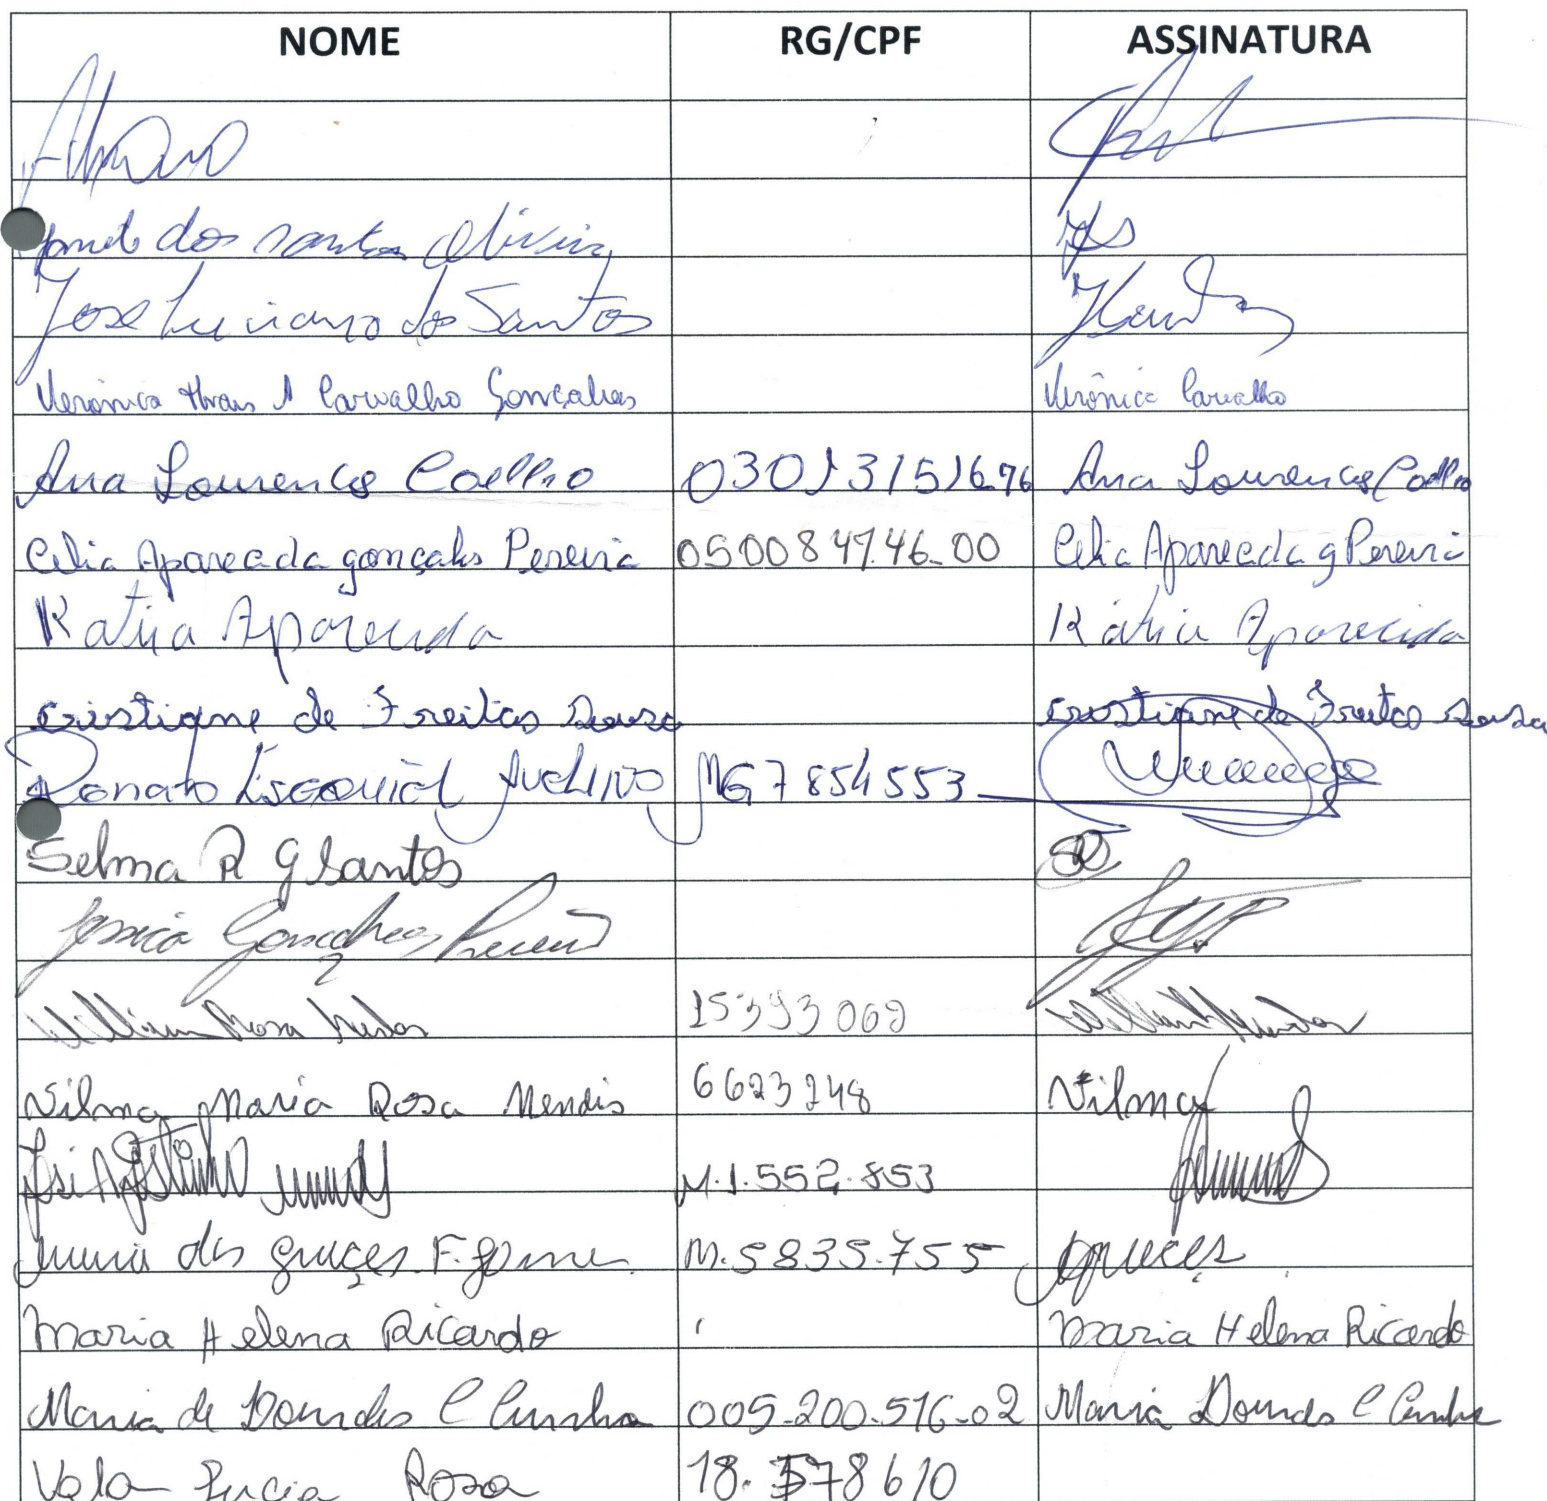 NOME RG/CPF ASSINATURA
dos santos Oliveira
Jose Luciano dos Santos
Verônica A Carvalho Gonçalves Verônica Carvalho
Ana Lourenço Coelho Ana Lourenço Coelho
Celia Aparecida gonçalves Pereira 05008474600 Celia Aparecida g Pereira
Katia Aparecida Kátia Aparecida
Cristiane de Freitas Souza Cristiane de Freitas Souza
Renato MG7854553
Selma R G Santos
Jessica Gonçalves Pereira
William Rosa Mendes 15393069 William Mendes
Vilma Maria Rosa Mendes 6623248 Vilma
José Agostinho M.1.552.853
Maria das graças F. gomes M.5835.755 graças
Maria Helena Ricardo Maria Helena Ricardo
Maria de Lourdes C Cunha 005.200.516-02 Maria Lourdes C Cunha
Lucia Rosa